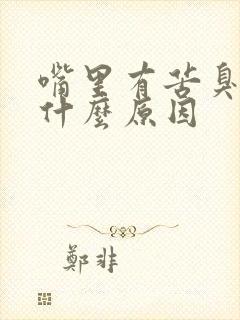 嘴里有苦臭
什麼原因
鄭非